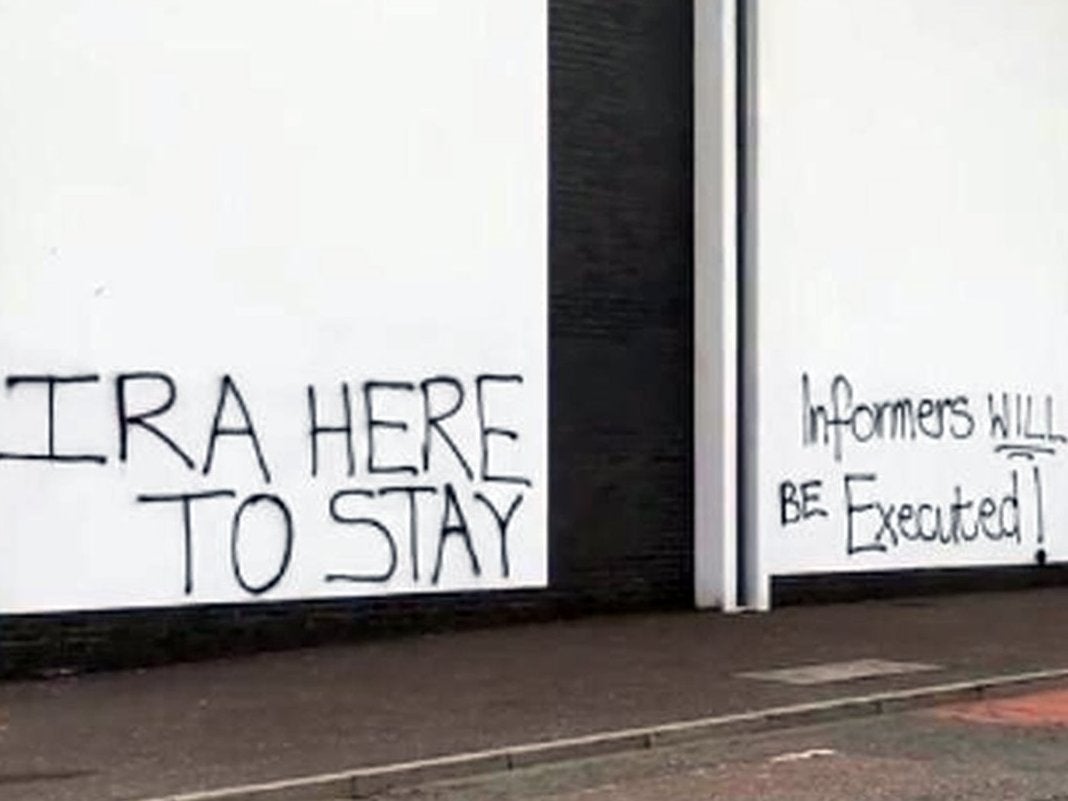 IRA HERE
TO STAY
Informers WILL
BE Executed!